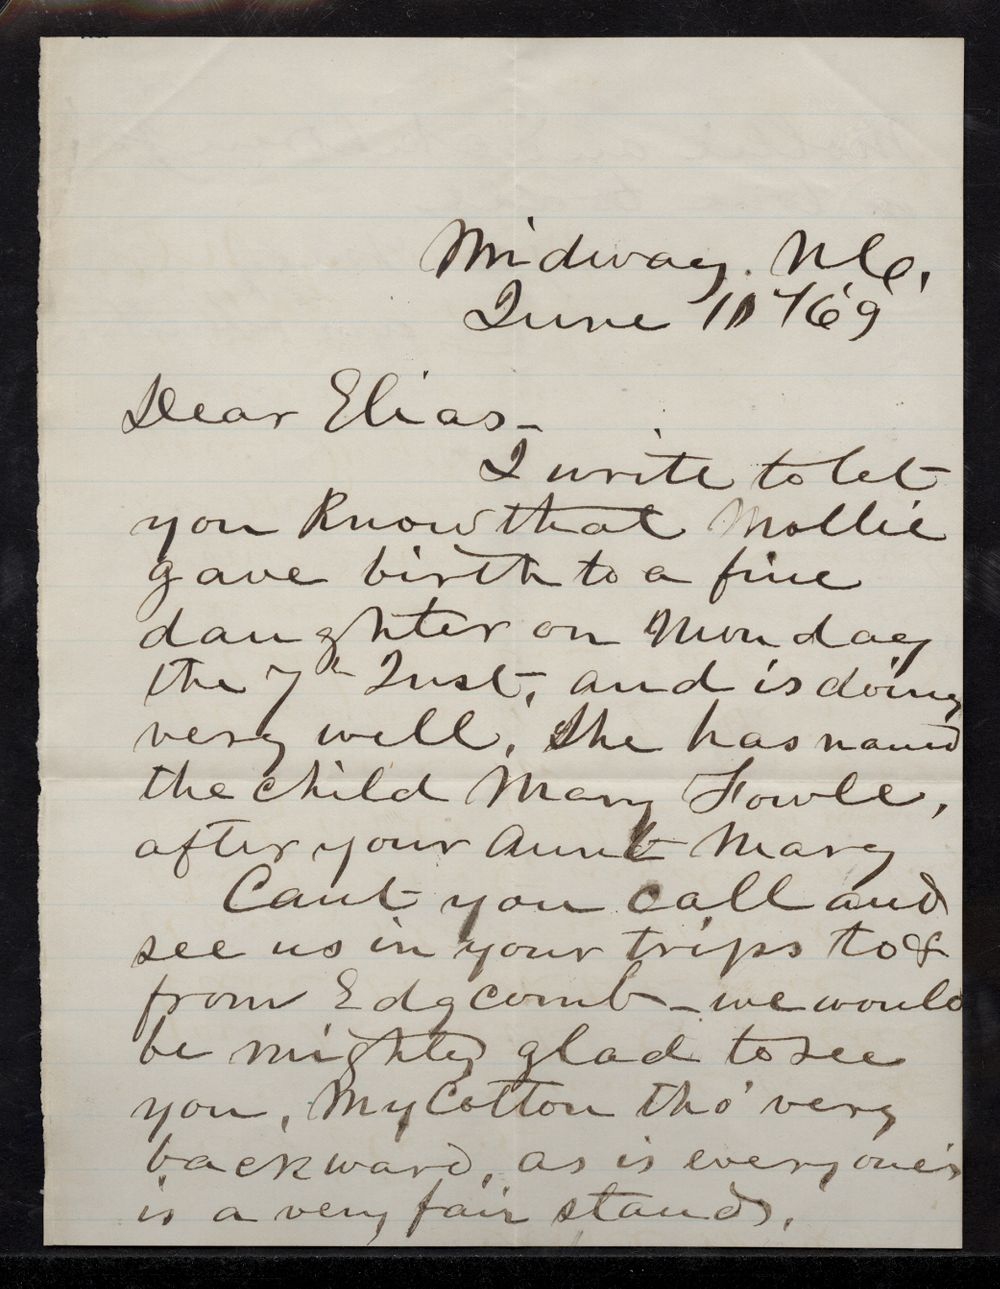 Midway. N.C.
June 10th/69
Dear Elias-
I write to let
you Know that Mollie
gave birth to a fine
daughter on Monday
the 7th Inst, and is doing
very well, She has named
the child Mary Fowle,
after your Aunt Mary
Cant you call and
see us in your trips to &
from Edgcomb - we would
be mighty glad to see
you, My Cotton tho' very
backward, as is everyone's
is a very fair stand,